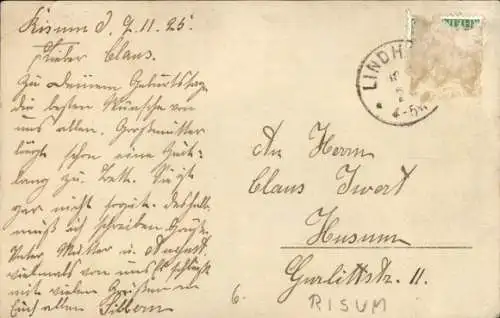 Risum d. 9.11.25.
Lieber Claus.
Zu Deinem Geburtstage
die besten Wünsche von
uns allen. Großmutter
liegt schon eine
lang zu Bett. Sie ist
gar nicht deshalb
muß ich schreiben
Vater Mutter u. August
vielmals von uns
mit vielen Grüßen an
Euch allen
LINDH
4-5N
An Herrn
Claus Iwert
Husum
Gurlittstr. 11.
6.
RISUM